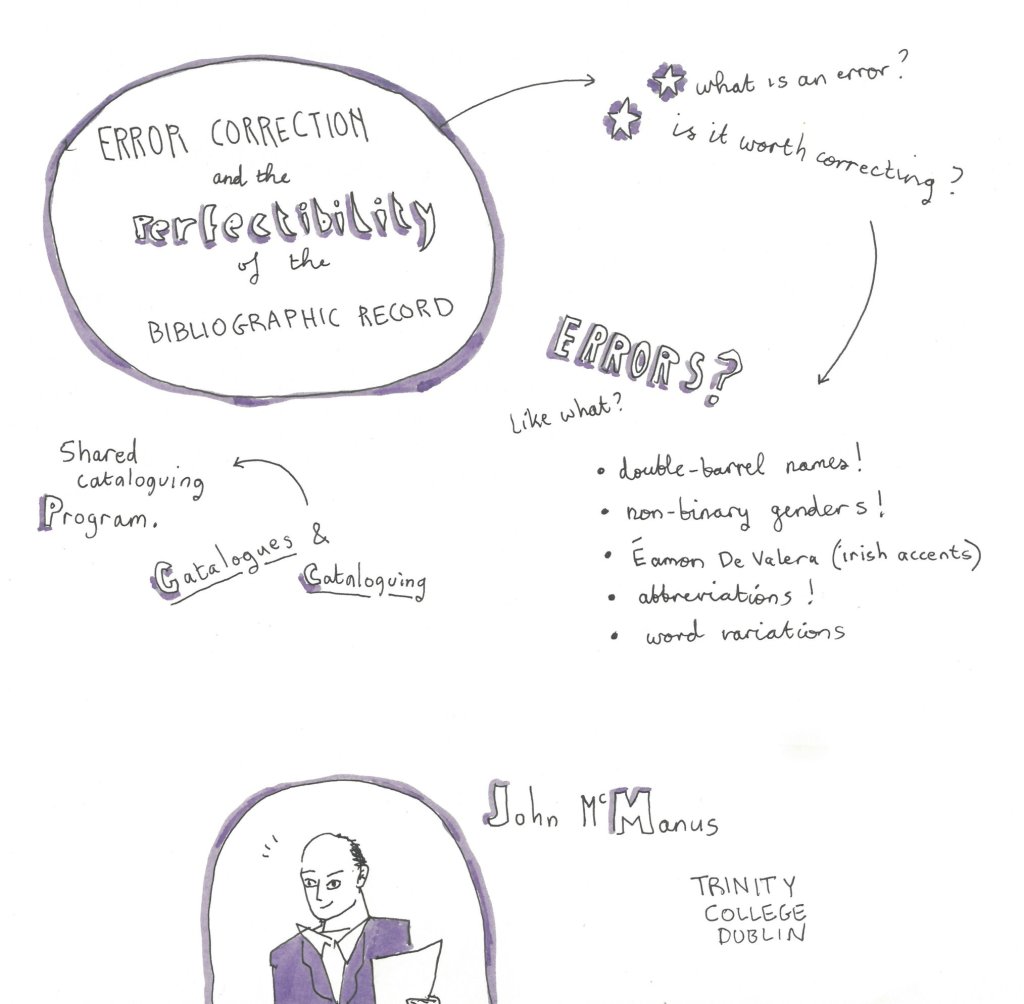 ERROR CORRECTION
and the
Perfectibility
of the
BIBLIOGRAPHIC RECORD
what is an error?
is it worth correcting?
ERRORS?
Like what?
• double-barrel names!
• non-binary genders!
• Éamon De Valera (irish accents)
• abbreviations!
• word variations
Shared
cataloguing
Program.
Catalogues &
Cataloguing
John McManus
TRINITY
COLLEGE
DUBLIN